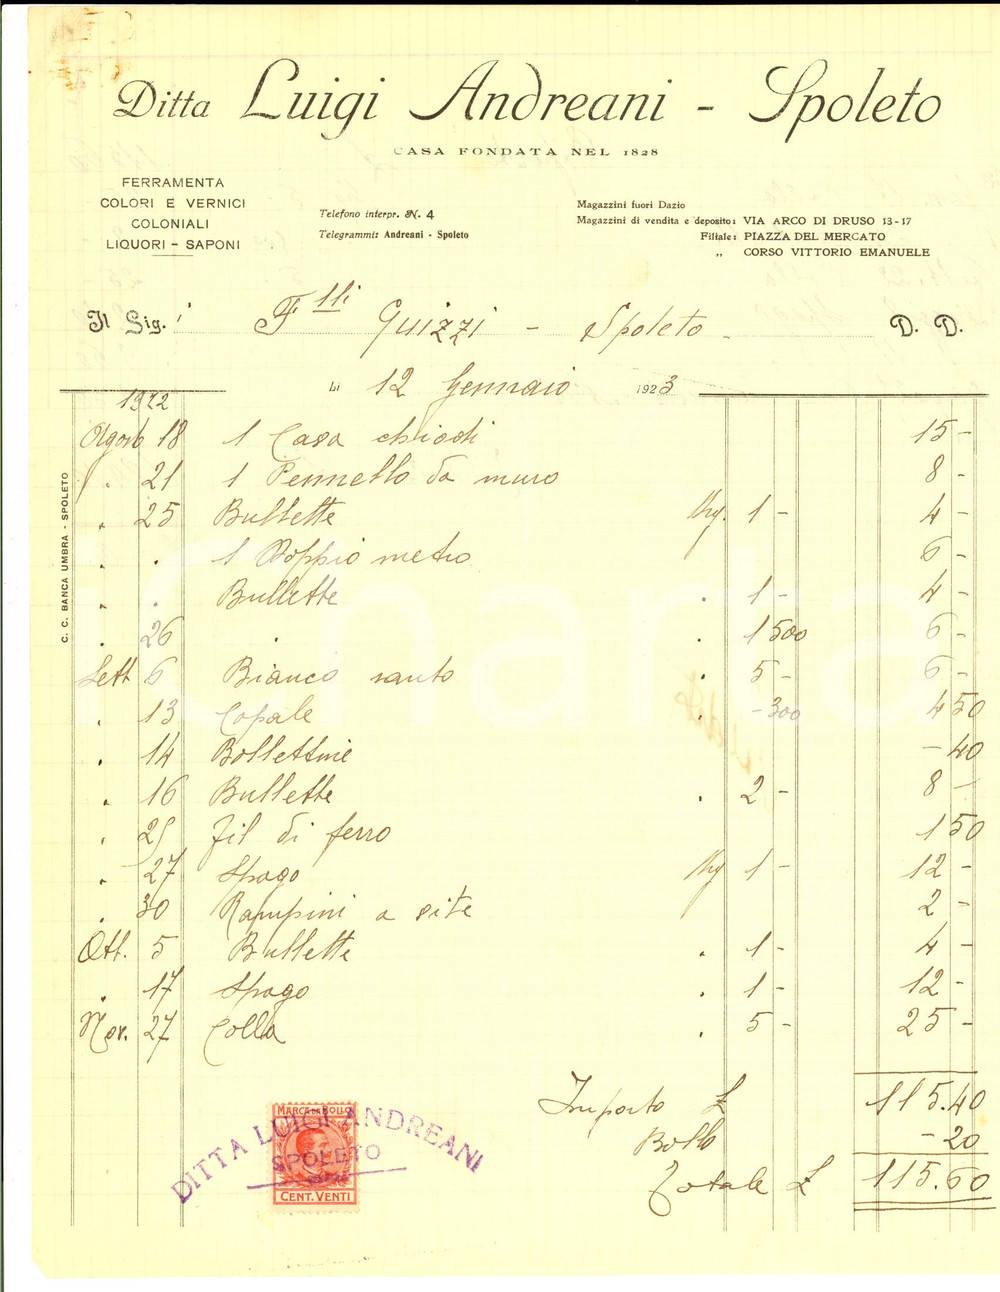 Ditta Luigi Andreani - Spoleto
CASA FONDATA NEL 1828
FERRAMENTA
COLORI E VERNICI
COLONIALI
LIQUORI - SAPONI
Telefono interpr. N. 4
Telegrammi: Andreani - Spoleto
Magazzini fuori Dazio
Magazzini di vendita e deposito: VIA ARCO DI DRUSO 13-17
Filiale: PIAZZA DEL MERCATO
„ CORSO VITTORIO EMANUELE
Il Sig. i F.lli Guizzi - Spoleto D. D.
Li 12 Gennaio 1923
1922
Agosto 18 1 Casa chiodi 15 -
" 21 1 Pennello da muro 8 -
" 25 Bullette Kg. 1 - 4 -
" " 1 Doppio metro 6 -
" " Bullette " 1 - 4 -
" 26 " " 1 500 6 -
Sett 6 Bianco santo " 5 - 6 -
" 13 Copale " - 300 4 50
" 14 Bollettine - 40
" 16 Bullette " 2 - 8 -
" 25 Fil di ferro 1 50
" 27 Spago Kg 1 - 12 -
" 30 Rampini a site 2 -
Ott. 5 Bullette " 1 - 4 -
" 17 Spago " 1 - 12 -
Nov. 27 Colla " 5 - 25 -
Importo £ 115.40
Bollo - 20
Totale £ 115.60
C. C. BANCA UMBRA - SPOLETO
MARCA DA BOLLO
CENT. VENTI
DITTA LUIGI ANDREANI
SPOLETO